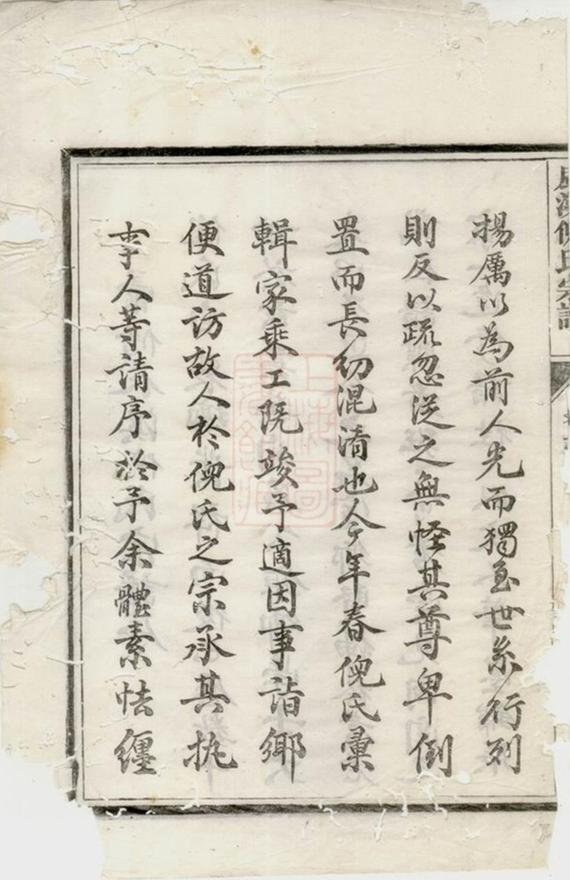 揚厲以為前人先而獨至世系行列
則反以疏忽從之無怪其尊卑倒
置而長幼混淆也今年春倪氏彙
輯家乘工既竣予適因事詣鄉
便道訪故人於倪氏之宗承其执
事人等請序於予余體素怯纏
倪氏宗譜